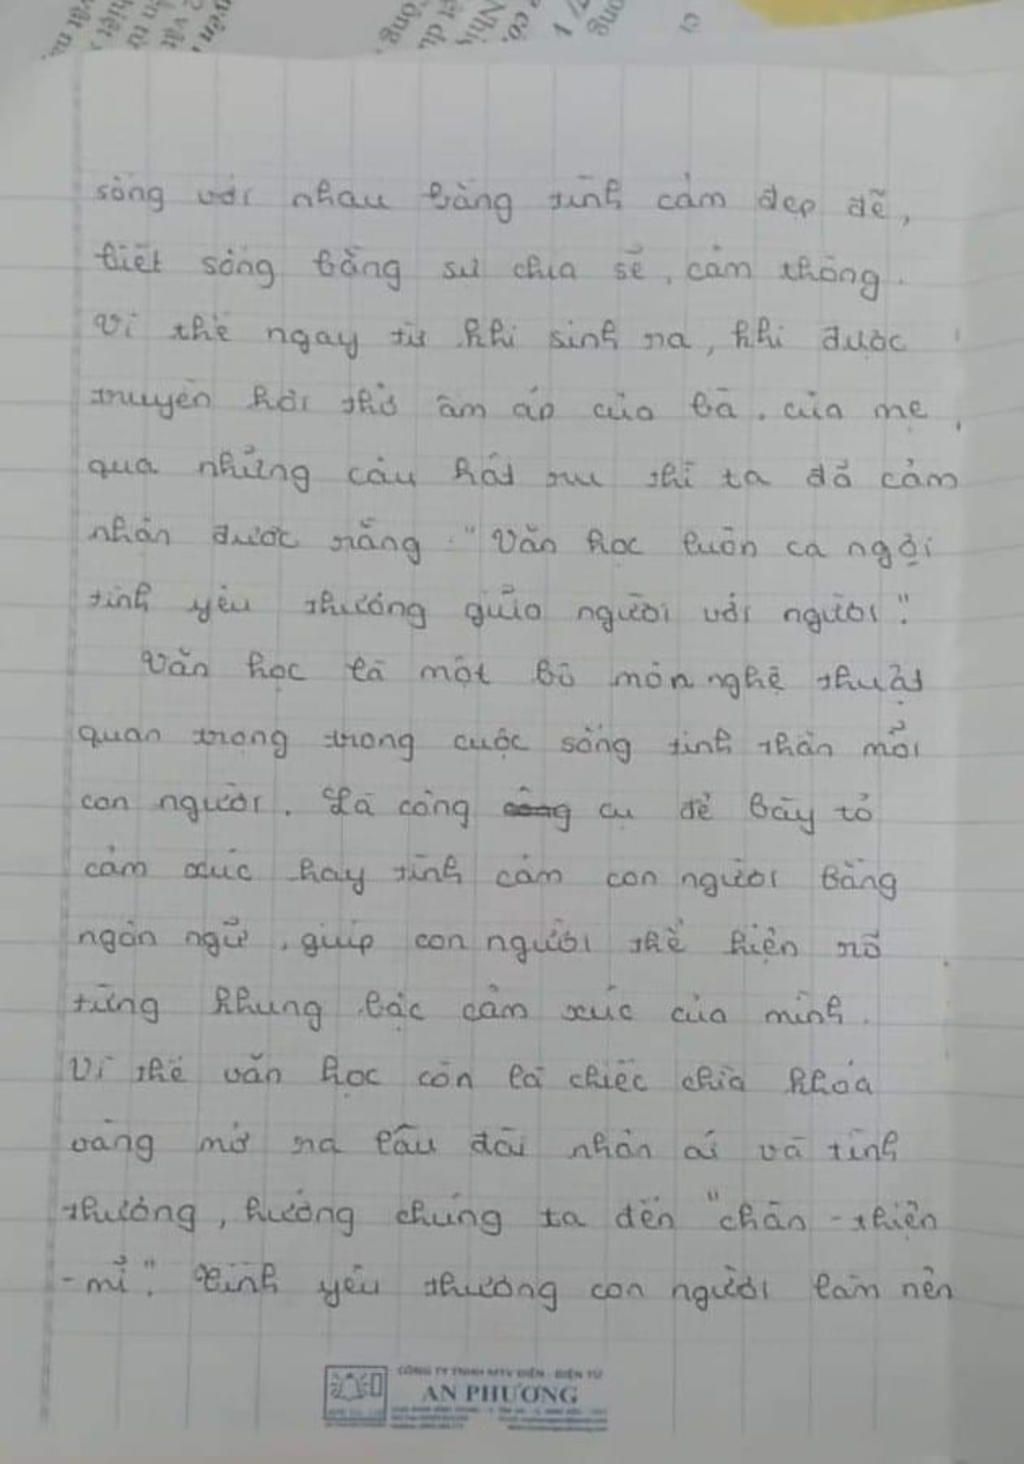 sống với nhau bằng tình cảm đẹp đẽ,
biết sống bằng sự chia sẻ, cảm thông.
Vì thế ngay từ khi sinh ra, khi được
truyền hơi thở ấm áp của bà, của mẹ,
qua những câu hát ru thì ta đã cảm
nhận được rằng "Văn học luôn ca ngợi
tình yêu thương giữa người với người".
Văn học là một bộ môn nghệ thuật
quan trọng trong cuộc sống tinh thần mỗi
con người. Là công cụ để bày tỏ
cảm xúc hay tình cảm con người bằng
ngôn ngữ, giúp con người thể hiện rõ
từng khung bậc cảm xúc của mình.
Vì thế văn học còn là chiếc chìa khóa
vàng mở ra lâu đài nhân ái và tình
thương, hướng chúng ta đến "chân - thiện
- mĩ". Tình yêu thương con người làm nên
CÔNG TY TNHH MTV ĐIỆN - ĐIỆN TỬ
AN PHƯƠNG